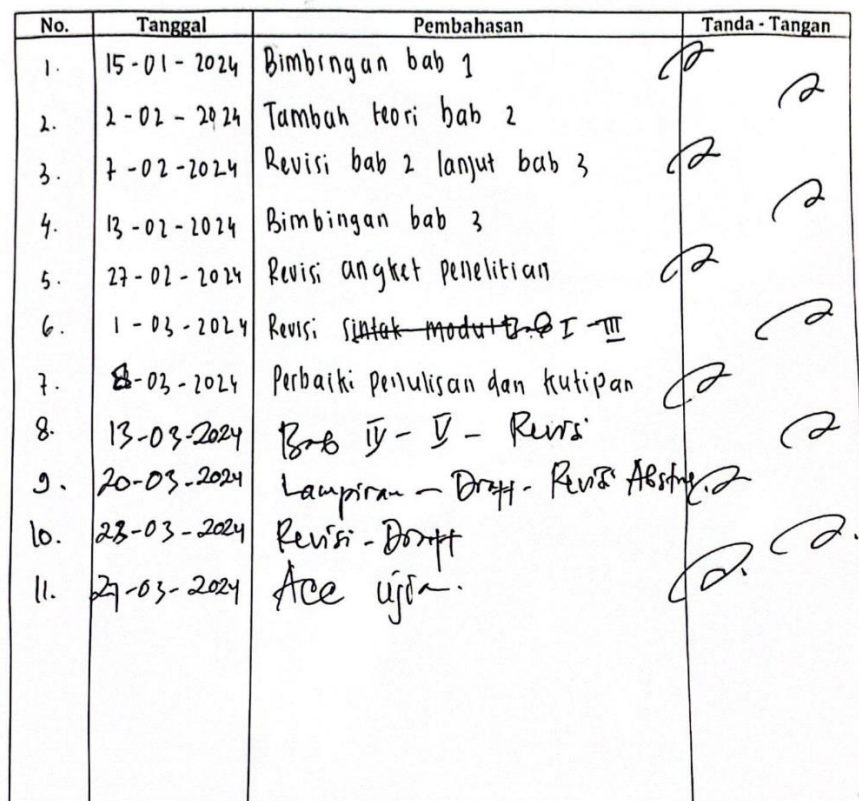 No. Tanggal Pembahasan Tanda - Tangan
1. 15 - 01 - 2024 Bimbingan bab 1
2. 2 - 02 - 2024 Tambah teori bab 2
3. 7 - 02 - 2024 Revisi bab 2 lanjut bab 3
4. 13 - 02 - 2024 Bimbingan bab 3
5. 27 - 02 - 2024 Revisi angket penelitian
6. 1 - 03 - 2024 Revisi I - III
7. 8 - 03 - 2024 Perbaiki penulisan dan kutipan
8. 13-03-2024 Bab IV - V - Revisi
9. 20-03-2024 Lampiran - Draft - Revisi
10. 23-03-2024 Revisi - Draft
11. 27-03-2024 Acc ujian.